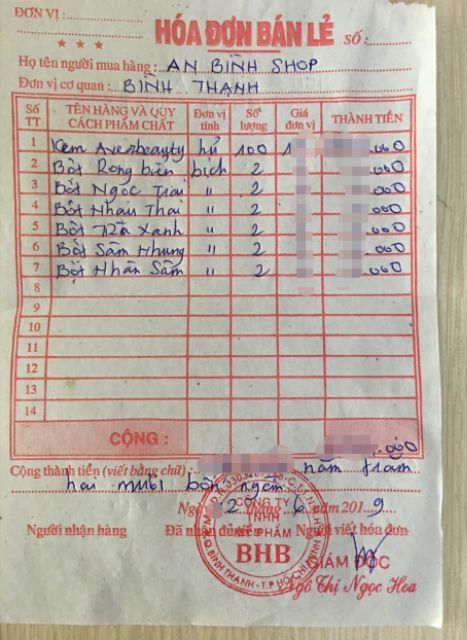 ĐƠN VỊ :
HÓA ĐƠN BÁN LẺ
SỐ:
Họ tên người mua hàng : AN BÌNH SHOP
Đơn vị cơ quan : BÌNH THẠNH
Số TT TÊN HÀNG VÀ QUY CÁCH PHẨM CHẤT Đơn vị tính Số lượng Giá đơn vị THÀNH TIỀN
1 Kem Averbeauty hủ 100 1 .000
2 Bột Rong biển bịch 2 .000
3 Bột Ngọc Trai " 2 .000
4 Bột Nhau Thai " 2 .000
5 Bột Trà Xanh " 2 .000
6 Bột Sâm Nhung " 2 .000
7 Bột Nhân Sâm " 2 .000
8
9
10
11
12
13
14
CỘNG : .000
Cộng thành tiền (viết bằng chữ) : năm trăm
hai mươi bốn ngàn
Ngày 2 tháng 6 năm 2019
Người nhận hàng Đã nhận đủ tiền Người viết hóa đơn
CÔNG TY
TNHH
MỸ PHẨM
BHB
Q.BÌNH THẠNH - T.P HỒ CHÍ MINH
GIÁM ĐỐC
Ngô Thị Ngọc Hoa